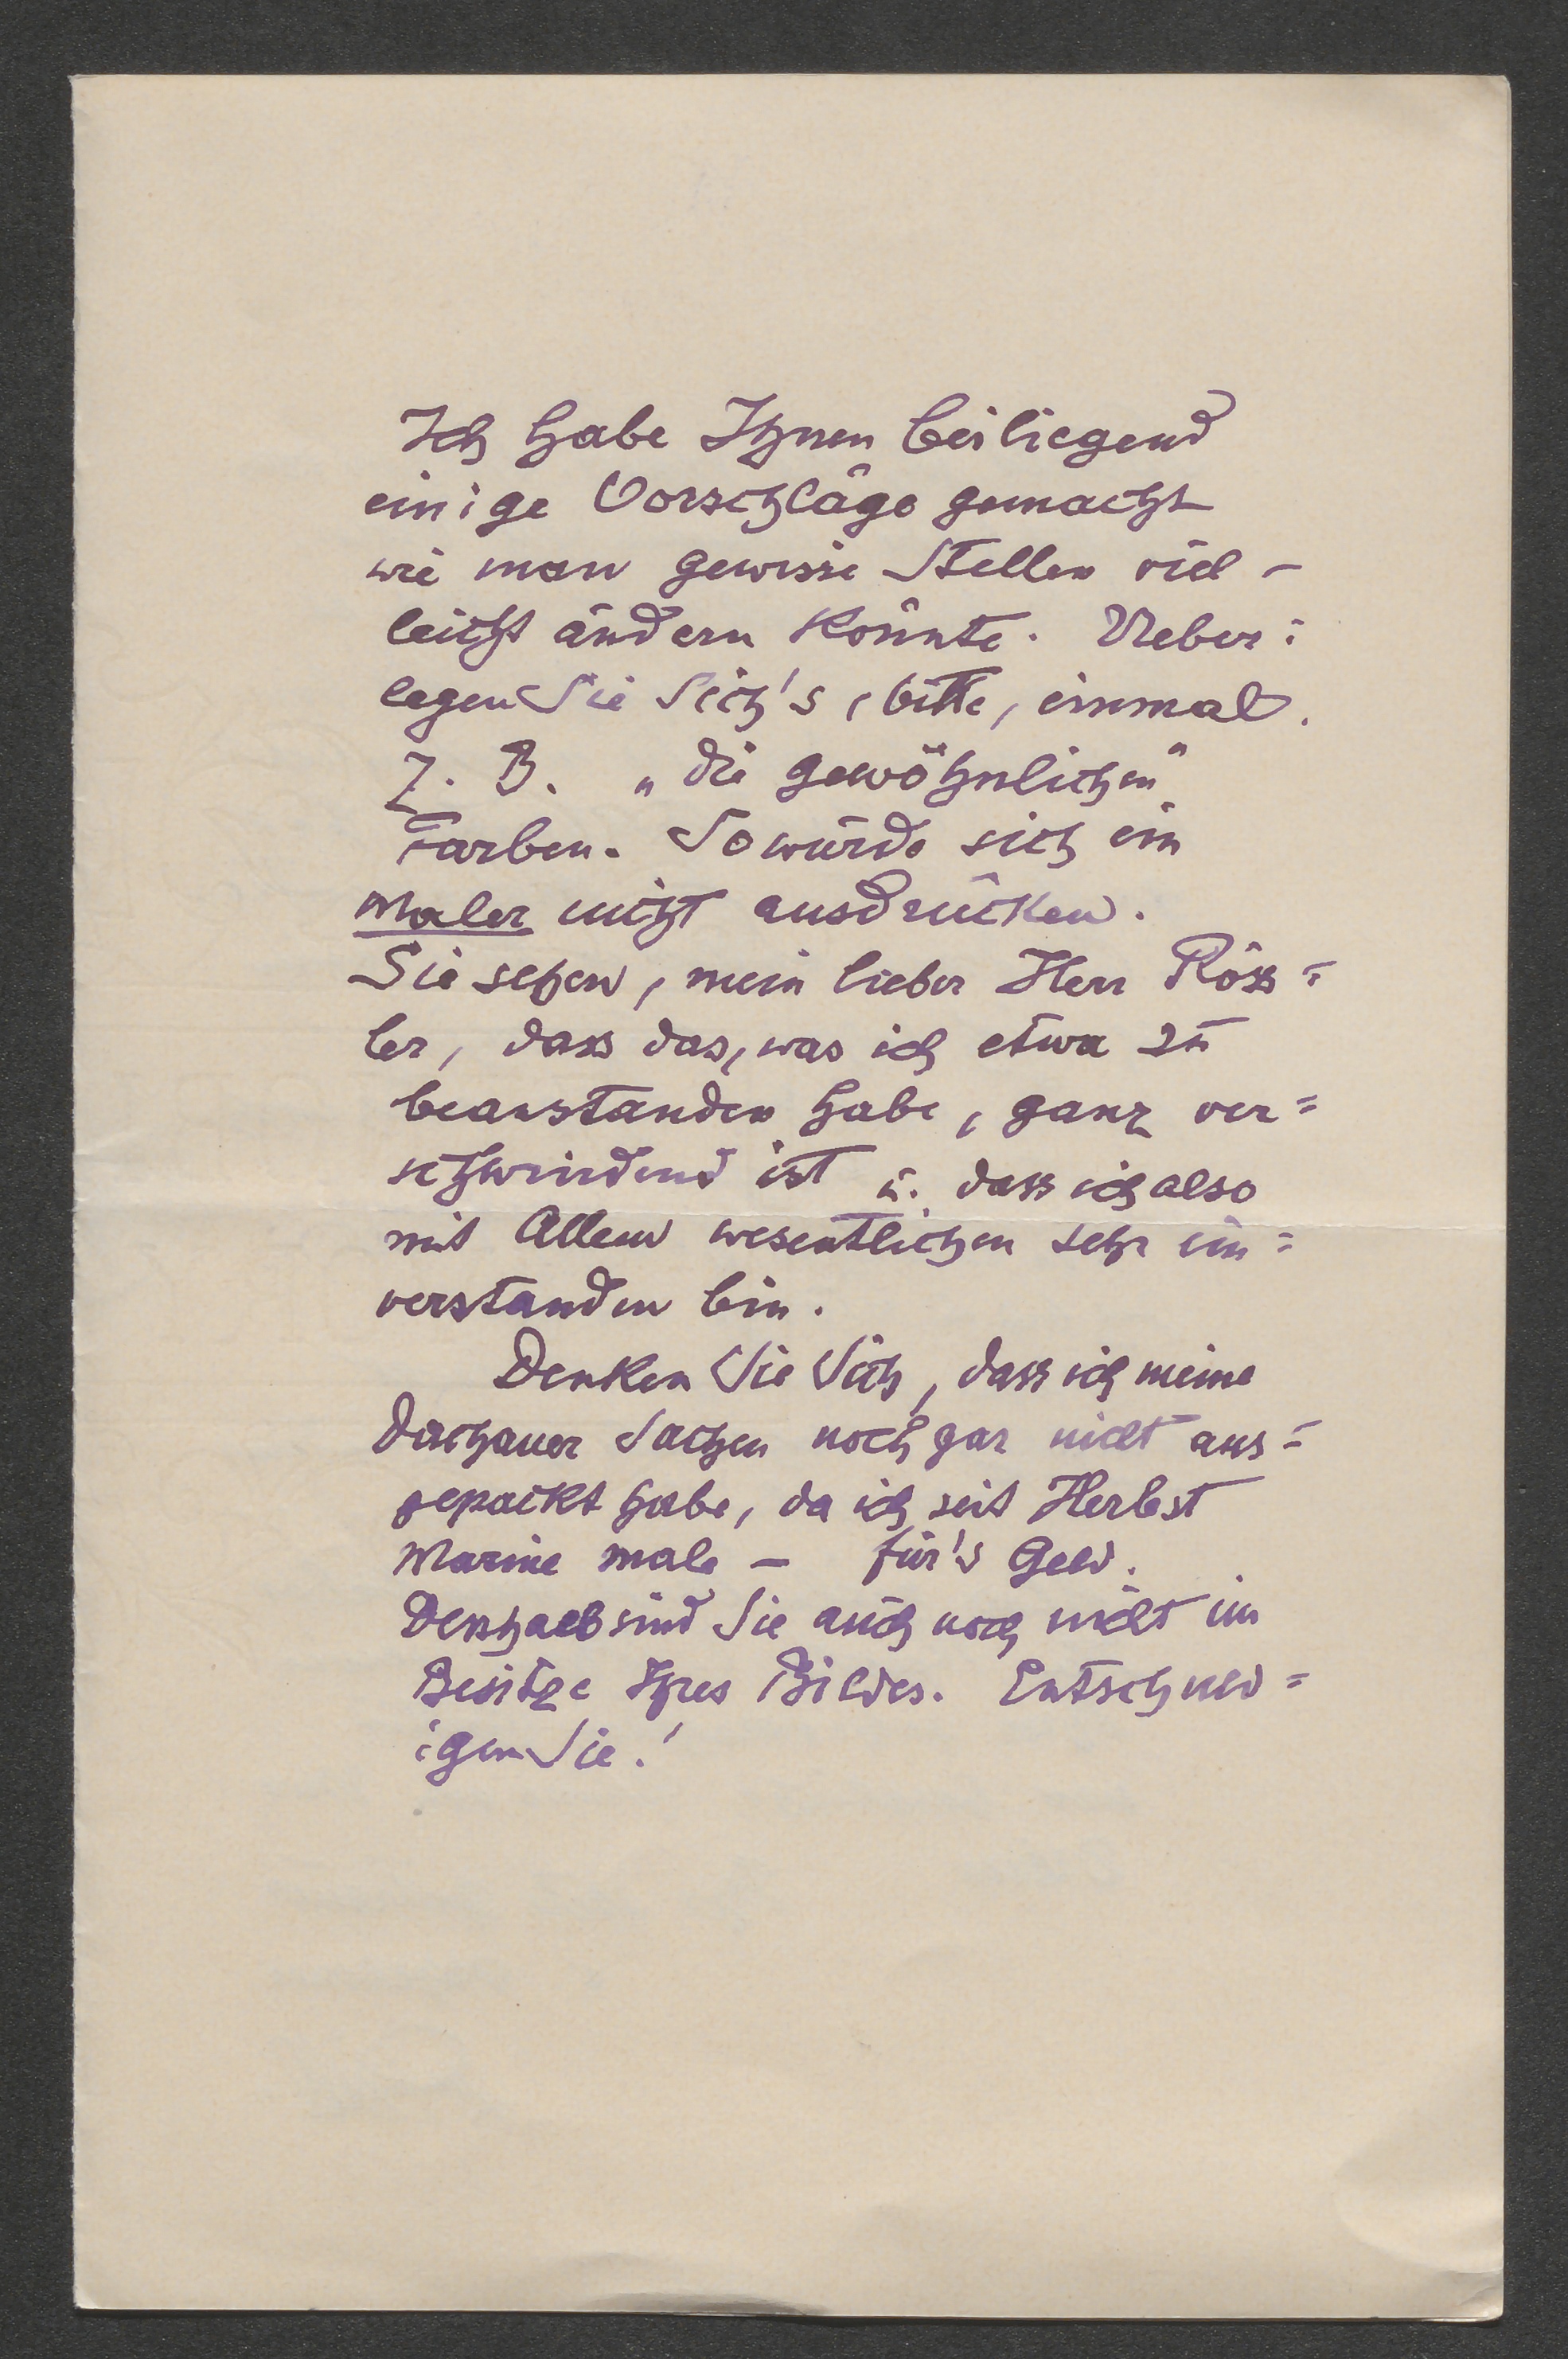 Ich habe Ihnen beiliegend
einige Vorschläge gemacht
wie man gewisse Stellen viel-
leicht ändern könnte. Ueber=
legen Sie Sich's, bitte, einmal.
Z. B. „die gewöhnlichen"
Farben. So würde sich ein
Maler nicht ausdrücken.
Sie sehen, mein lieber Herr Röss=
ler, dass das, was ich etwa zu
beanstanden habe, ganz ver=
schwindend ist u. dass ich also
mit Allem wesentlichen sehr ein=
verstanden bin.
Denken Sie Sich, dass ich meine
Dachauer Sachen noch gar nicht aus=
gepackt habe, da ich seit Herbst
Marine male - für's Geld.
Desshalb sind Sie auch noch nicht im
Besitze Ihres Bildes. Entschuld=
igen Sie!